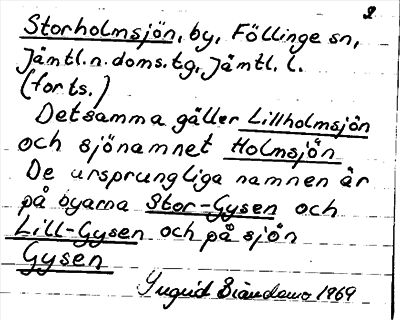 2
Storholmsjön, by, Föllinge sn,
Jämtl. n. doms.tg, Jämtl. l.
(forts.)
Detsamma gäller Lillholmsjön
och sjönamnet Holmsjön
De ursprungliga namnen är
på byarna Stor-Gysen och
Lill-Gysen och på sjön
Gysen
Ingrid 1969